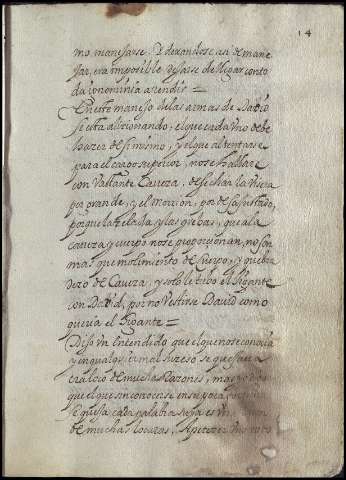 14
mo manejarse. Y dexandose asi de mane
jar, era imposible dejarse de llegar con to
da ignominia a rendir =
En este manejo de las armas de David
se esta alicionando, el que cada Uno debe
hacer de si mismo, y el que al tentarse
para el cargo superior, no se hallare
con Valiante Caveza, desechar la Visera
por grande, y el morrion, por desajustado,
porque la Zelada, y las grebas, que a la
caveza y cuerpo no se proporcionan, no son
mas que molimiento de Cuerpo, y quebra
dero de Caveza, y solo le tubo el Gigante
con David, por no Vestirse David como
queria el Gigante =
Dijo Un Entendido que el que no se conocia
y en qualquier mal suzeso se quejava
era loco de muchas Razones, mas yo digo
que el que sin conocerse
se queja cada palabra suya es
de muchas locuras,